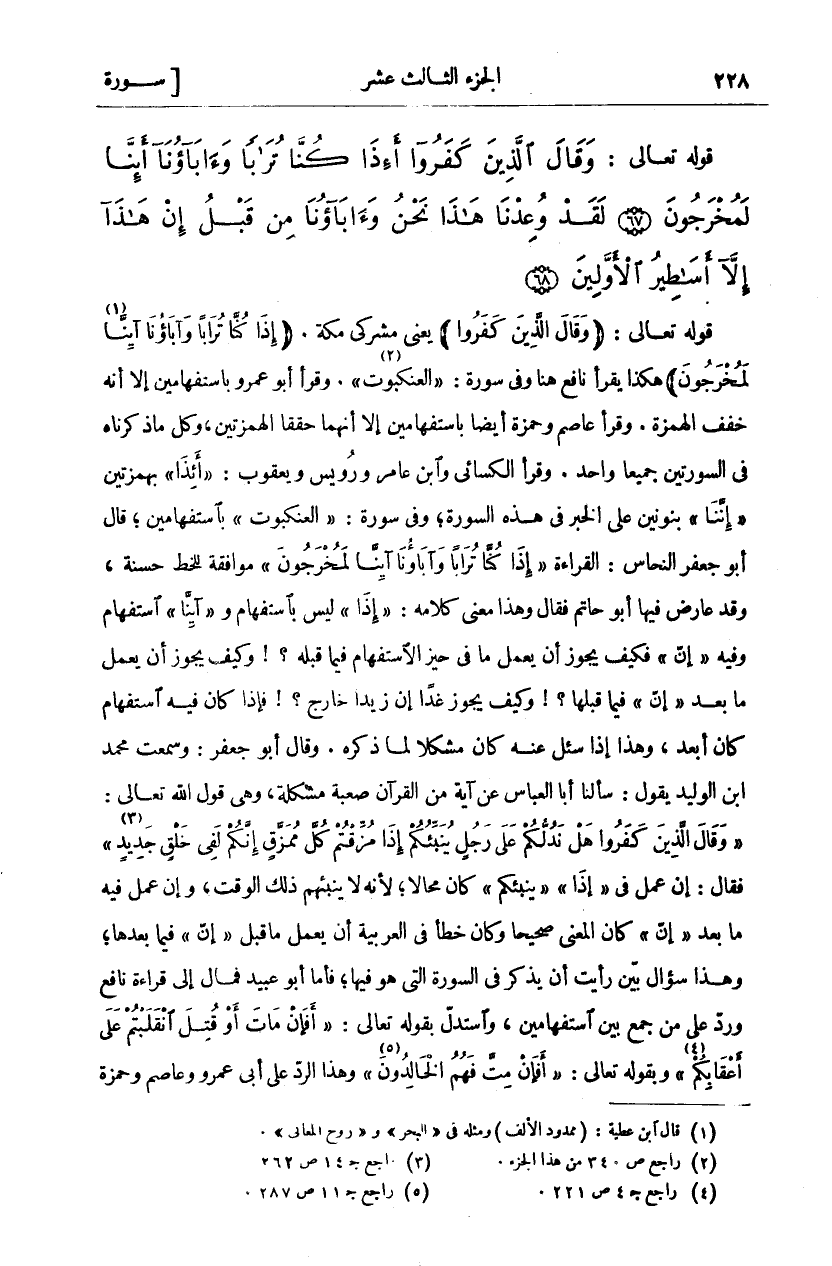 ٢٢٨ الجزء الثالث عشر [ ســورة
قوله تعـالى : وَقَالَ ٱلَّذِينَ كَفَرُوٓا۟ أَءِذَا كُنَّا تُرَٰبًا وَءَابَآؤُنَآ أَئِنَّا
لَمُخْرَجُونَ ﴿٦٧﴾ لَقَدْ وُعِدْنَا هَـٰذَا نَحْنُ وَءَابَآؤُنَا مِن قَبْلُ إِنْ هَـٰذَآ
إِلَّآ أَسَـٰطِيرُ ٱلْأَوَّلِينَ ﴿٦٨﴾
قوله تعالى : ﴿ وَقَالَ الَّذِينَ كَفَرُوا ﴾ يعنى مشركى مكة . ﴿ إِذَا كُنَّا تُرَابًا وَآبَاؤُنَا آيِنَّا (١)
لَمُخْرَجُونَ﴾ هكذا يقرأ نافع هنا وفى سورة : «العنكبوت» (٢) . وقرأ أبو عمرو باستفهامين إلا أنه
خفف الهمزة . وقرأ عاصم وحمزة أيضا باستفهامين إلا أنهما حققا الهمزتين، وكل ماذكرناه
فى السورتين جميعا واحد . وقرأ الكسائى وٱبن عامر ورُويس ويعقوب : «أَئِذَا» بهمزتين
« إِنَّنَا » بنونين على الخبر فى هـذه السورة؛ وفى سورة : « العنكبوت » بٱستفهامين؛ قال
أبو جعفر النحاس : القراءة « إِذَا كُنَّا تُرَابًا وَآبَاؤُنَا آيِنَّا لَمُخْرَجُونَ » موافقة للخط حسنة ،
وقد عارض فيها أبو حاتم فقال وهذا معنى كلامه : « إِذَا » ليس بٱستفهام و « آيِنَّا » ٱستفهام
وفيه « إنّ » فكيف يجوز أن يعمل ما فى حيز الٱستفهام فيما قبله ؟ ! وكيف يجوز أن يعمل
ما بعـد « إنّ » فيما قبلها ؟ ! وكيف يجوز غدًا إن زيدا خارج ؟ ! فإذا كان فيـه ٱستفهام
كان أبعد ، وهذا إذا سئل عنـه كان مشكلا لمـا ذكره . وقال أبو جعفر : وسمعت محمد
ابن الوليد يقول : سألنا أبا العباس عن آية من القرآن صعبة مشكلة، وهى قول الله تعـالى :
« وَقَالَ الَّذِينَ كَفَرُوا هَلْ نَدُلُّكُمْ عَلَى رَجُلٍ يُنَبِّئُكُمْ إِذَا مُزِّقْتُمْ كُلَّ مُمَزَّقٍ إِنَّكُمْ لَفِى خَلْقٍ جَدِيدٍ » (٣)
فقال : إن عمل فى « إذَا » « ينبئكم » كان محالا؛ لأنه لا ينبئهم ذلك الوقت، وإن عمل فيه
ما بعد « إنّ » كان المعنى صحيحا وكان خطأ فى العربية أن يعمل ماقبل « إنّ » فيما بعدها؛
وهـذا سؤال بيّن رأيت أن يذكر فى السورة التى هو فيها؛ فأما أبو عبيد فمـال إلى قراءة نافع
وردّ على من جمع بين ٱستفهامين ، وٱستدلّ بقوله تعالى : « أَفَإِنْ مَاتَ أَوْ قُتِـلَ ٱنْقَلَبْتُمْ عَلَى
أَعْقَابِكُمْ » (٤) وبقوله تعالى : « أَفَإِنْ مِتَّ فَهُمُ الْخَالِدُونَ » (٥) وهذا الردّ على أبى عمرو وعاصم وحمزة
(١) قال ٱبن عطية : (ممدود الألف) ومثله فى « البحر » و « روح المعانى » .
(٢) راجع ص ٣٤٠ من هذا الجزء . (٣) راجع جـ ١٤ ص ٢٦٢
(٤) راجع جـ ٤ ص ٢٢١ . (٥) راجع جـ ١١ ص ٢٨٧ .